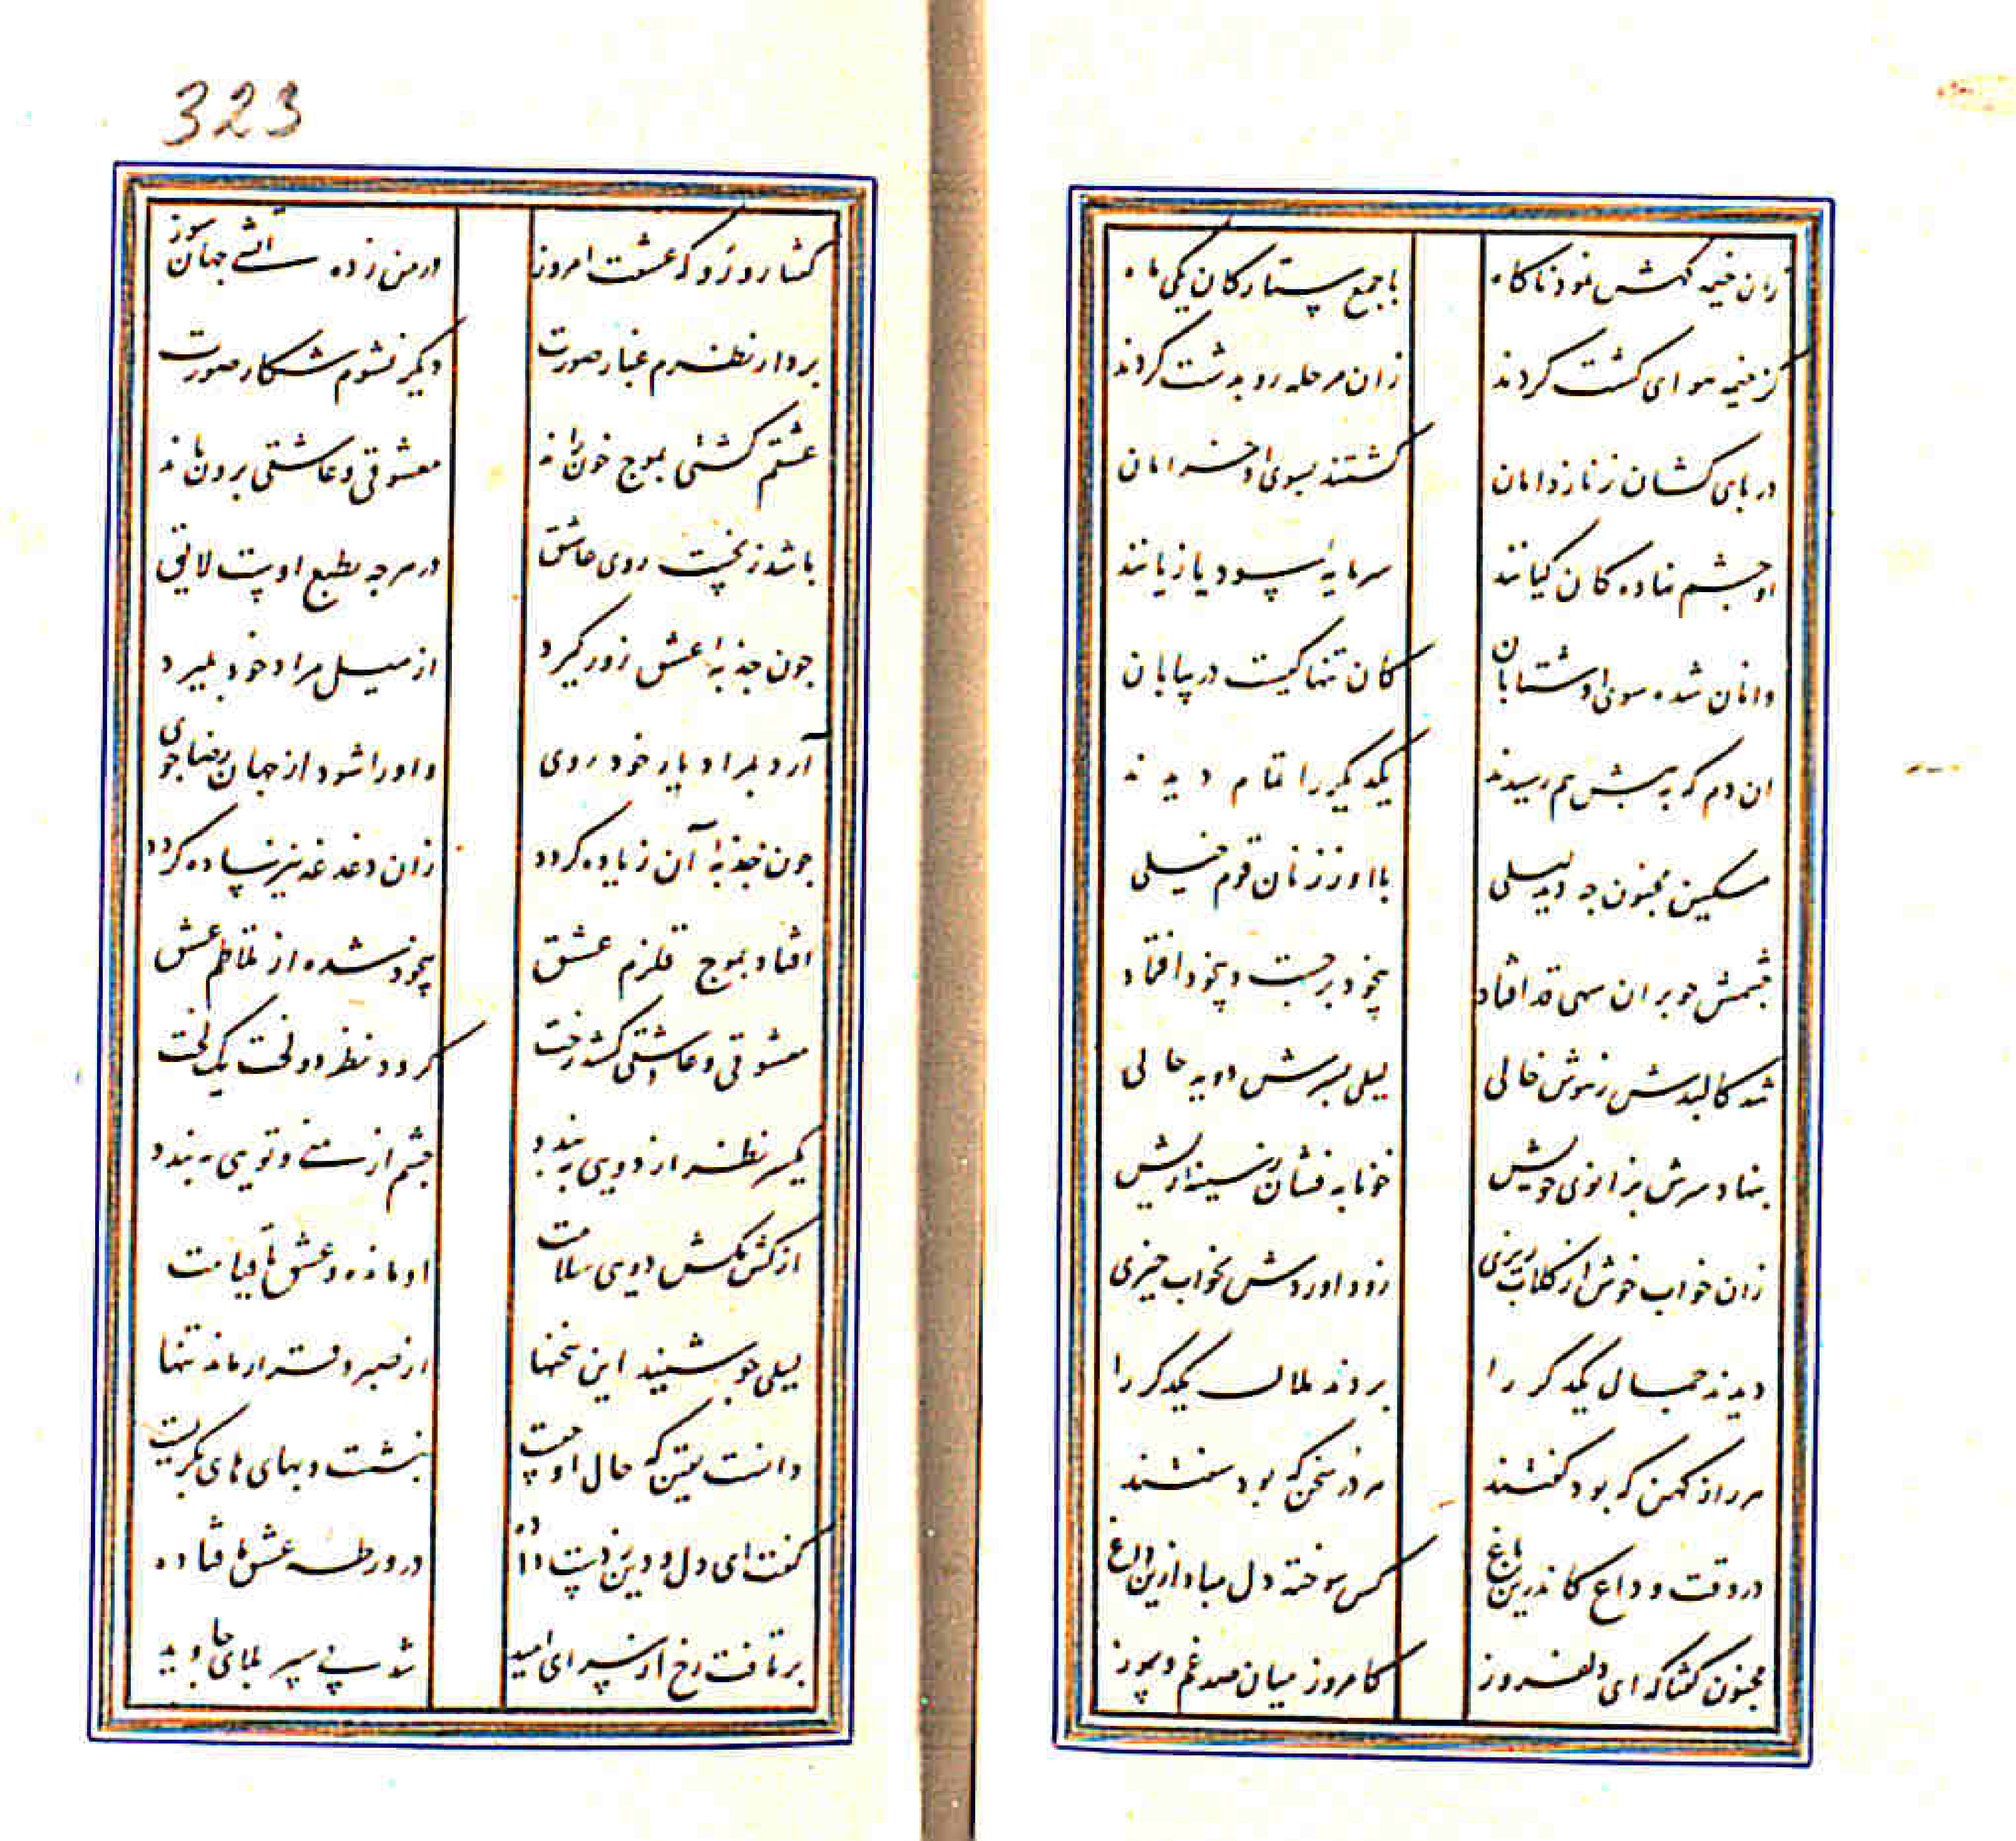 زان خیمه کهش نمود ناکاه با جمع ستارکان یکی ماه
کز خیمه هوای کشت کردند زان مرحله رو بدشت کردند
در پای کشان ز ناز دامان کشتند بسوی او خرامان
او چشم نهاده کان کیانند سرمایهٔ سود یا زیانند
و انان شده سوی او شتابان کان تنها کیست در بیابان
ان دم که به پیش هم رسیدند یکدیکر را تمام دیدند
مسکین مجنون چه دید لیلی با او ز زنان قوم خیلی
چشمش چو بران سهی قد افتاد بیخود برجست و بیخود افتاد
شد کالبدش ز هوش خالی لیلی بسرش دوید حالی
بنهاد سرش بزانوی خویش خونابه فشان ز سینه ریش
زان خواب خوش از کلاب ریزی زود اوردش بخواب خیزی
دیدند جمال یکدکر را بردند ملال یکدکر را
هر راز کهن که بود کفتند هر در سخن که بود سفتند
در وقت وداع کاندرین باغ کس سوخته دل مباد ازین داغ
مجنون کفتا که ای دلفروز کامروز میان صد غم و سوز
323
کفتا رو رو که عشقت امروز در من زده آتشی جهان سوز
بردار نظرم غبار صورت دیکر نشوم شکار صورت
عشقم کشتی بموج خون راند معشوقی و عاشقی برون ماند
باشد ز نخست روی عاشق در هرچه بطبع اوست لایق
چون جذبهٔ عشق زور کیرد از میل مراد خود بمیرد
آرد بمراد یار خود روی و او را شود از جهان رضا جوی
چون جذبهٔ آن زیاده کردد زان دغدغه نیز ساده کردد
افتاد بموج قلزم عشق بیخود شده از تلاطم عشق
معشوقی و عاشقی کشد رخت کردد نظر دو لخت یک لخت
یکسر نظر از دویی ببندد چشم از منی و تویی ببندد
از کش مکش دویی سلامت او ماند و عشق تا قیامت
لیلی چو شنید این سخنها از صبر و قرار ماند تنها
دانست یقین که حال او چیست بنشست و بهای های بکریست
کفت ای دل و دین ز دست داده در ورطه عشق ما فتاده
برتافت رخ از سرای امید شد پی سپر بلای جاوید